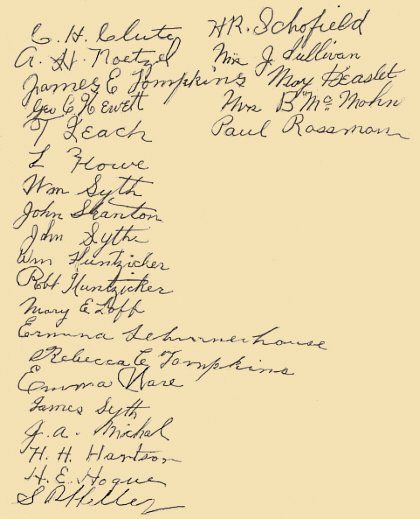 C. H. Clutey
A. H. Noetzel
James E Tompkins
Geo C Hewett
T Leach
L Howe
Wm Syth
John Stanton
John Syth
Wm Huntzicker
Robt Huntzicker
Mary E Loff
Ermina Schermerhouse
Rebecca E Tompkins
Emma Ware
James Syth
J. A. Michal
H. H. Hanson
H. E. Hogue
S B Heller
H R. Schofield
Mrs J. Sullivan
Mox Beaslet
Mrs B Mc Mohn
Paul Rossman